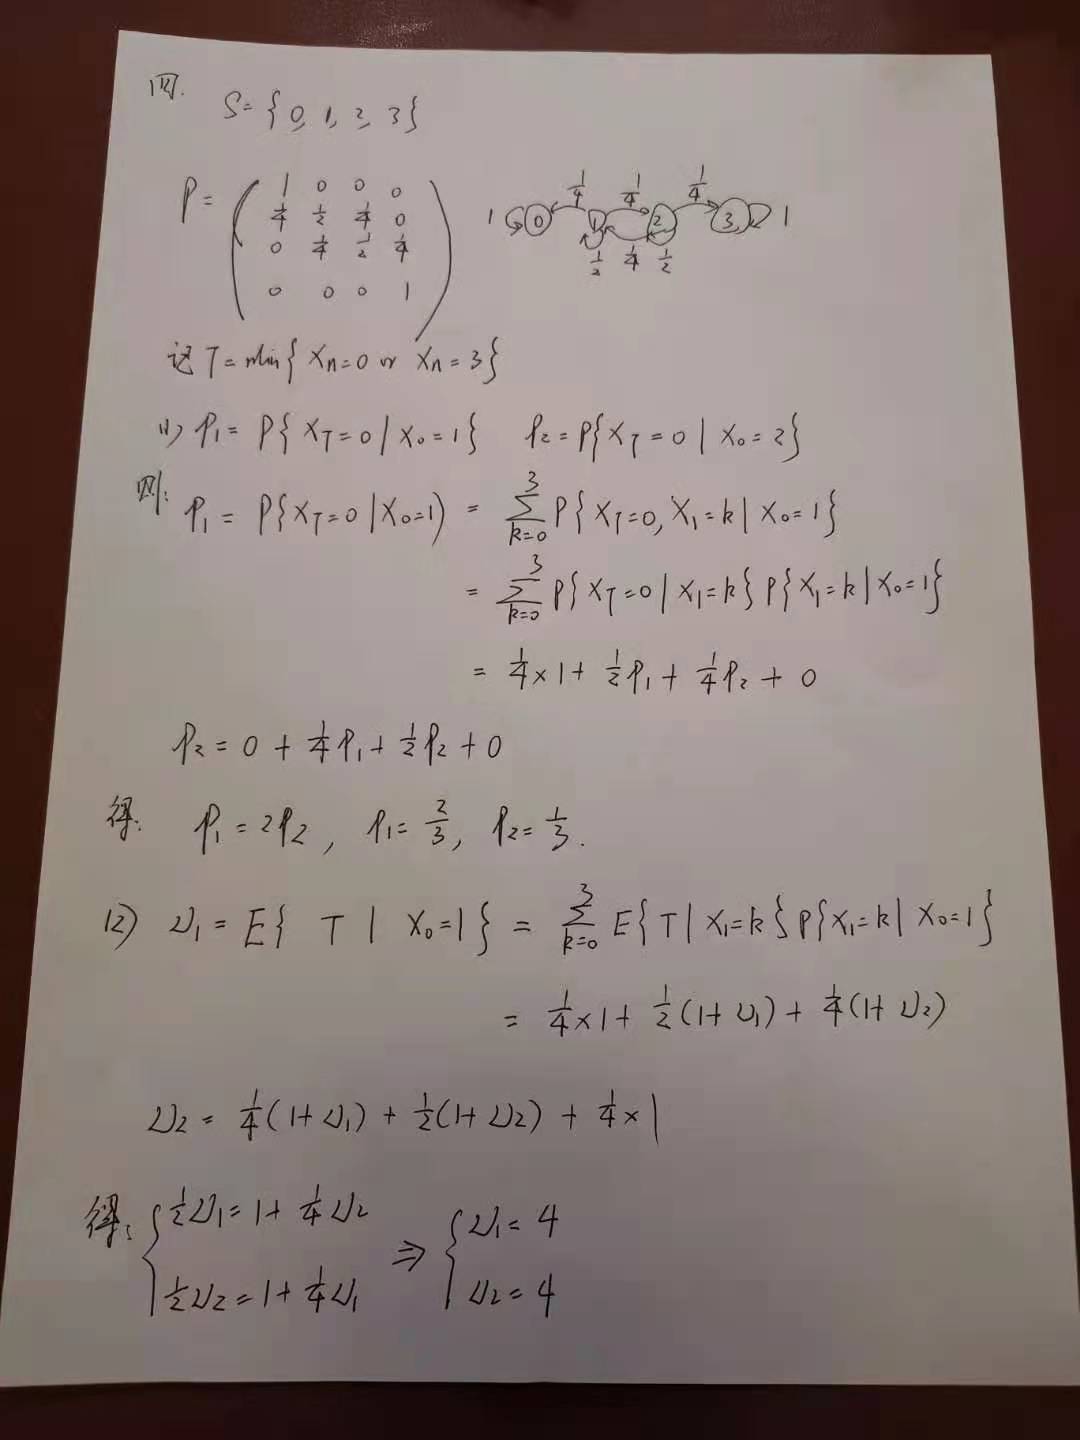 四.
S={0, 1, 2, 3}
P=
1 0 0 0
1/4 1/2 1/4 0
0 1/4 1/2 1/4
0 0 0 1
1/4 1/4 1/4
1 0 1 2 3 1
1/2 1/4 1/2
记 T=min{Xn=0 or Xn=3}
(1) P1=P{XT=0|X0=1} P2=P{XT=0|X0=2}
则: P1=P{XT=0|X0=1) = ∑(k=0→3) P{XT=0, X1=k|X0=1}
= ∑(k=0→3) P{XT=0|X1=k}P{X1=k|X0=1}
= 1/4×1+1/2P1+1/4P2+0
P2=0+1/4P1+1/2P2+0
得: P1=2P2, P1=2/3, P2=1/3.
(2) υ1=E{T|X0=1}=∑(k=0→3) E{T|X1=k}P{X1=k|X0=1}
= 1/4×1+1/2(1+υ1)+1/4(1+υ2)
υ2=1/4(1+υ1)+1/2(1+υ2)+1/4×1
得: {1/2υ1=1+1/4υ2 ⇒ {υ1=4
1/2υ2=1+1/4υ1 υ2=4